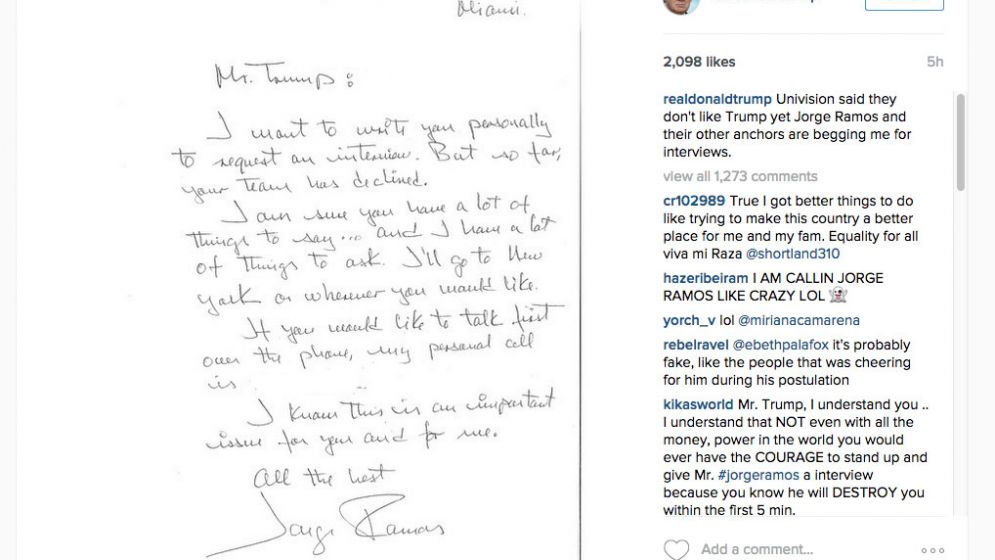 Miami.
Mr. Trump:
I want to write you personally
to request an interview. But so far,
your team has declined.
I am sure you have a lot of
things to say... and I have a lot
of things to ask. I'll go to New
York or wherever you would like.
If you would like to talk first
over the phone, my personal cell
is
I know this is an important
issue for you and for me.
All the best
Jorge Ramos
2,098 likes
5h
realdonaldtrump Univision said they
don't like Trump yet Jorge Ramos and
their other anchors are begging me for
interviews.
view all 1,273 comments
cr102989 True I got better things to do
like trying to make this country a better
place for me and my fam. Equality for all
viva mi Raza @shortland310
hazeribeiram I AM CALLIN JORGE
RAMOS LIKE CRAZY LOL 👻
yorch_v lol @mirianacamarena
rebelravel @ebethpalafox it's probably
fake, like the people that was cheering
for him during his postulation
kikasworld Mr. Trump, I understand you ..
I understand that NOT even with all the
money, power in the world you would
ever have the COURAGE to stand up and
give Mr. #jorgeramos a interview
because you know he will DESTROY you
within the first 5 min.
Add a comment...